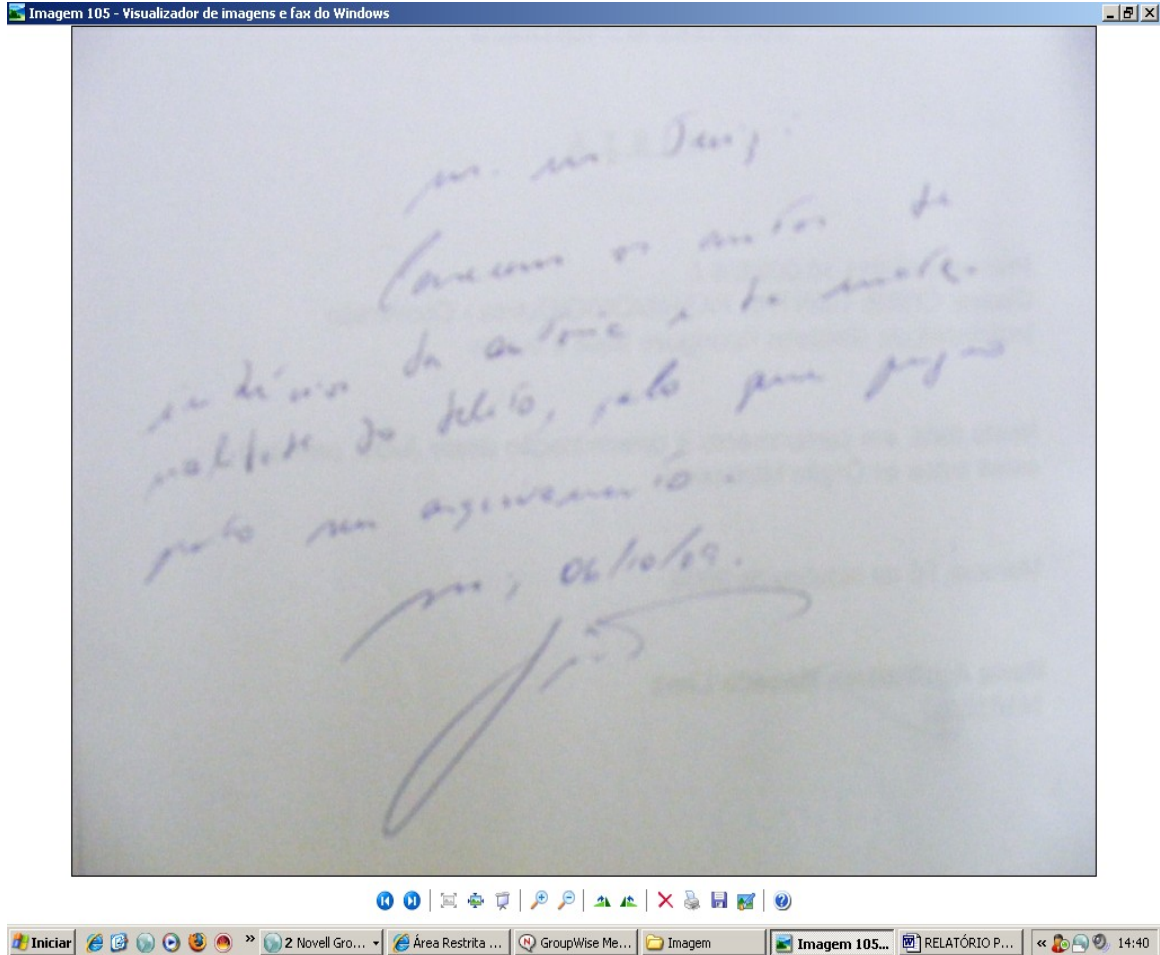 Imagem 105 - Visualizador de imagens e fax do Windows
Carecem os autos de
indícios da autoria e da mate-
rialidade do delito, pelo que pugno
pelo seu arquivamento.
06/10/09.
Iniciar
2 Novell Gro...
Área Restrita ...
GroupWise Me...
Imagem
Imagem 105...
RELATÓRIO P...
14:40